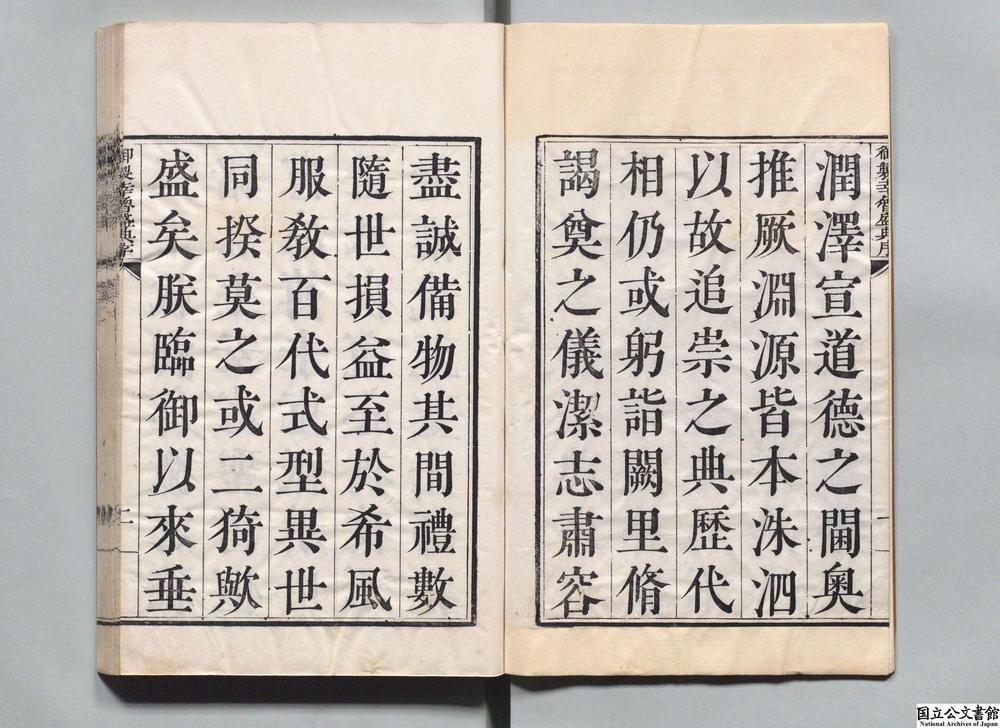 御製幸魯盛典序
一
潤澤宣道德之閫奧
推厥淵源皆本洙泗
以故追崇之典歷代
相仍或躬詣闕里脩
謁奠之儀潔志肅容
盡誠備物其間禮數
隨世損益至於希風
服教百代式型異世
同揆莫之或二猗歟
盛矣朕臨御以來垂
御製幸魯盛典序
二
国立公文書館
National Archives of Japan